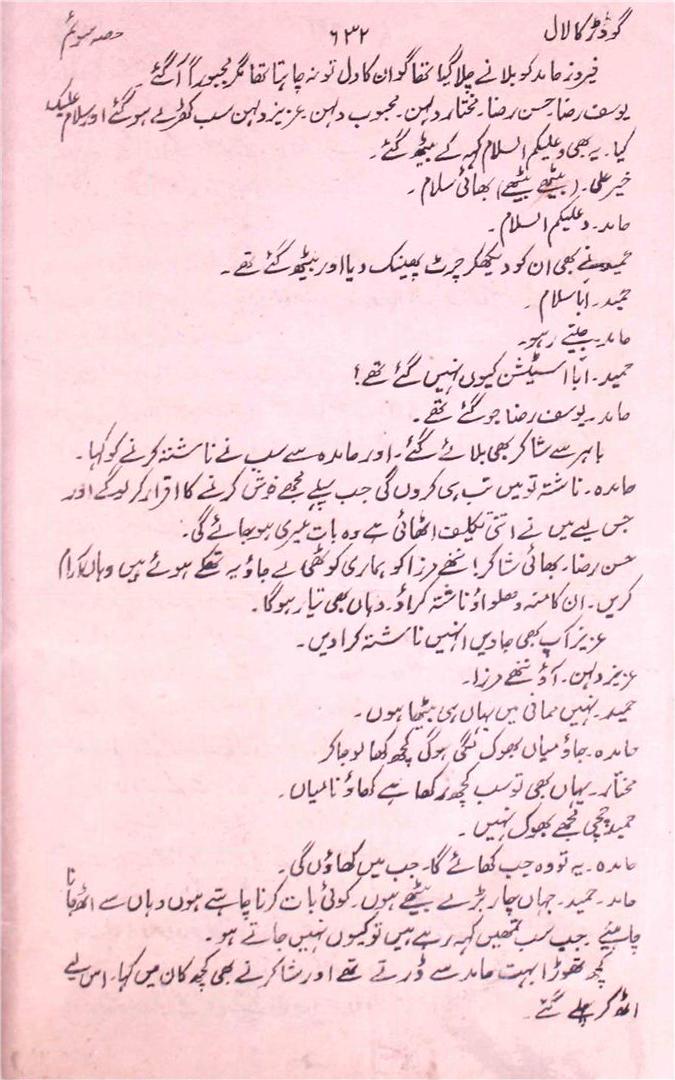 گودڑ کا لال ۶۳۲ حصہ سوئم
فیروز حامد کو بلانے چلا گیا تھا گو ان کا دل تو نہ چاہتا تھا مگر مجبوراً آ گئے۔
یوسف رضا۔ حسن رضا۔ مختار دلہن۔ محبوب دلہن۔ عزیز دلہن سب کھڑے ہو گئے اور سلام علیک
کیا۔ یہ بھی وعلیکم السلام کہہ کے بیٹھ گئے۔
خیر علی۔ (بیٹھے بیٹھے) بھائی سلام۔
حامد۔ وعلیکم السلام۔
حمید نے بھی ان کو دیکھکر چرٹ پھینک دیا اور بیٹھ گئے تھے۔
حمید۔ ابا سلام۔
حامد۔ جیتے رہو۔
حمید۔ ابا اسٹیشن کیوں نہیں گئے تھے؟
حامد۔ یوسف رضا جو گئے تھے۔
باہر سے شاکر بھی بلائے گئے۔ اور حامدہ سے سب نے ناشتہ کرنے کو کہا۔
حامدہ۔ ناشتہ تو میں تب ہی کروں گی جب پہلے مجھے خوش کرنے کا اقرار کر لو گے اور
جس لیے میں نے اتنی تکلیف اٹھائی ہے وہ بات میری ہو جائے گی۔
حسن رضا۔ بھائی شاکر! ننھے مرزا کو ہماری کوٹھی لے جاؤ یہ تھکے ہوئے ہیں وہاں آرام
کریں۔ ان کا منہ دھلواؤ ناشتہ کراؤ۔ وہاں بھی تیار ہوگا۔
عزیز آپ بھی جاویں انہیں ناشتہ کرا دیں۔
عزیز دلہن۔ آؤ ننھے مرزا۔
حمید۔ نہیں ممانی میں یہاں ہی بیٹھا ہوں۔
حامدہ۔ جاؤ میاں بھوک لگی ہوگی کچھ کھا لو جا کر
مختار۔ یہاں بھی تو سب کچھ رکھا ہے کھاؤ نا میاں۔
حمید چچی مجھے بھوک نہیں۔
حامدہ۔ یہ تو وہ جب کھائے گا۔ جب میں کھاؤں گی۔
حامد۔ حمید۔ جہاں چار بڑے بیٹھے ہوں۔ کوئی بات کرنا چاہتے ہوں وہاں سے اٹھ جانا
چاہیئے۔ جب سب تمہیں کہہ رہے ہیں تو کیوں نہیں جاتے ہو۔
کچھ تھوڑا بہت حامد سے ڈرتے تھے اور شاکر نے بھی کچھ کان میں کہا۔ اس لیے
اٹھ کر چلے گئے۔